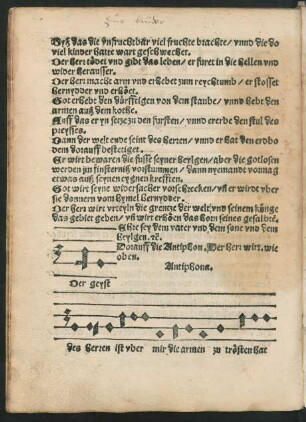 Byß das die vnfruchtbar viel fruchte brachte / vnnd die do
viel kinder hatte wart geschwechet.
Der herr tödet vnd gibt das leben / er furet in die hellen vnd
wider herausser.
Der herr macht arm vnd erhebet zum reychtumb / er stosset
hernydder vnd erhöet.
Got erhebt den dürfftigen von dem staube / vnnd hebt den
armen auß dem kothe.
Auff das er yn setze zu den fursten / vnnd ererbe den stul des
preysses.
Dann der welt ende seint des herren / vnnd er hat den erdbo
dem dorauff befestiget.
Er wirt bewaren die fusse seyner heylgen / aber die gotlosen
werden ym finsternis vorstummen / dann nyemandt vormag
etwas auß seynen eygnen krefften.
Got wirt seyne widersacher vorschrecken / vñ er wirdt vber
sie donnern vom hymel hernydder.
Der herr wirt vrteyln die grentze der welt / vnd seinem künge
das gebiet geben / vñ wirt erhöen das horn seines gesalbtẽ.
Ehre sey dem vater vnd dem sone vnd dem
heylgen. ꝛc.
Dorauff die Antiphon. Der herr wirt. wie
oben.
Antiphona.
Der geyst
des herren ist vber mir die armen zu trösten hat